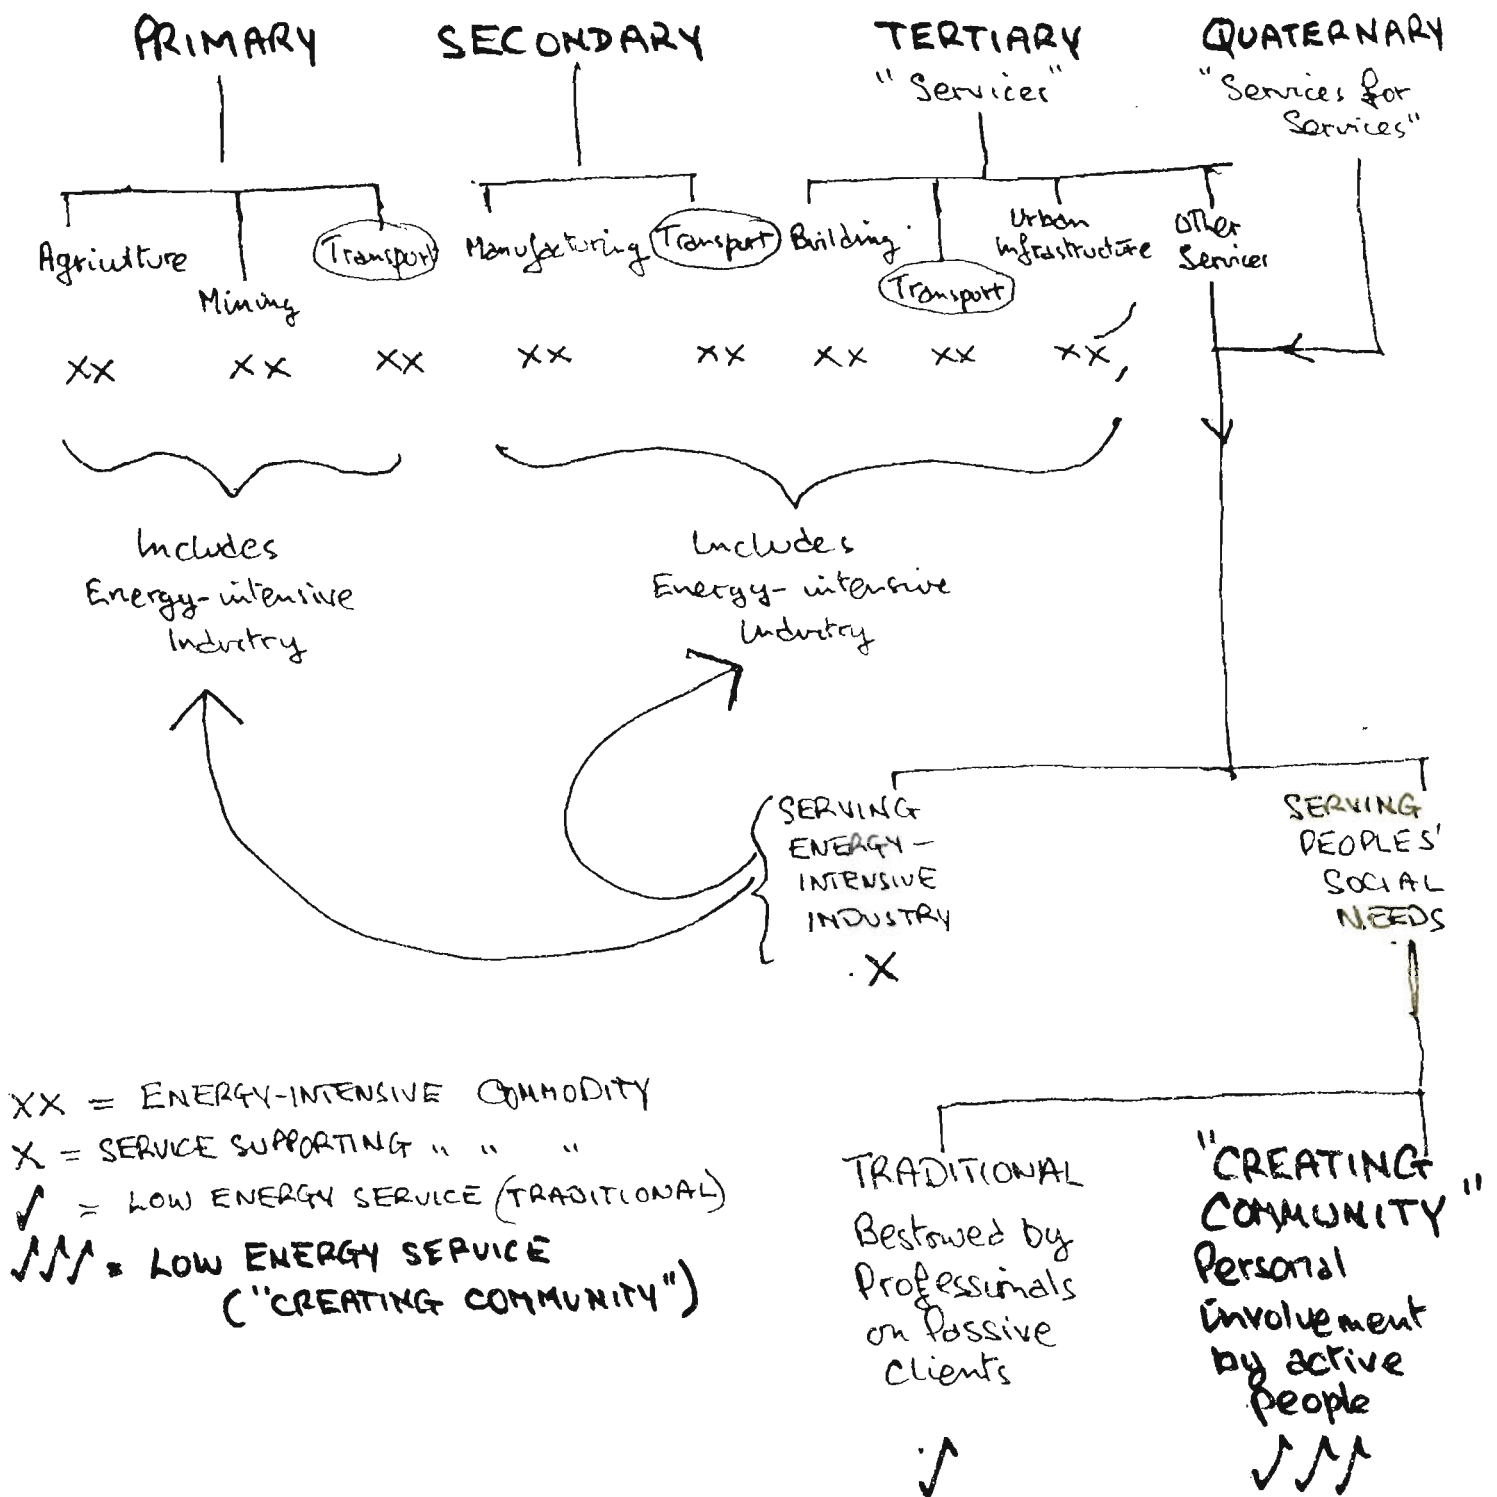 PRIMARY SECONDARY TERTIARY QUATERNARY
"Services" "Services for
Services"
Agriculture Mining Transport Manufacturing Transport Building Transport Urban
Infrastructure Other
Services
XX XX XX XX XX XX XX XX
Includes
Energy-intensive
Industry
Includes
Energy-intensive
Industry
SERVING
ENERGY-
INTENSIVE
INDUSTRY
X
SERVING
PEOPLES'
SOCIAL
NEEDS
XX = ENERGY-INTENSIVE COMMODITY
X = SERVICE SUPPORTING " " "
✓ = LOW ENERGY SERVICE (TRADITIONAL)
✓✓✓ = LOW ENERGY SERVICE
("CREATING COMMUNITY")
TRADITIONAL
Bestowed by
Professionals
on Passive
Clients
✓
"CREATING
COMMUNITY"
Personal
involvement
by active
people
✓✓✓